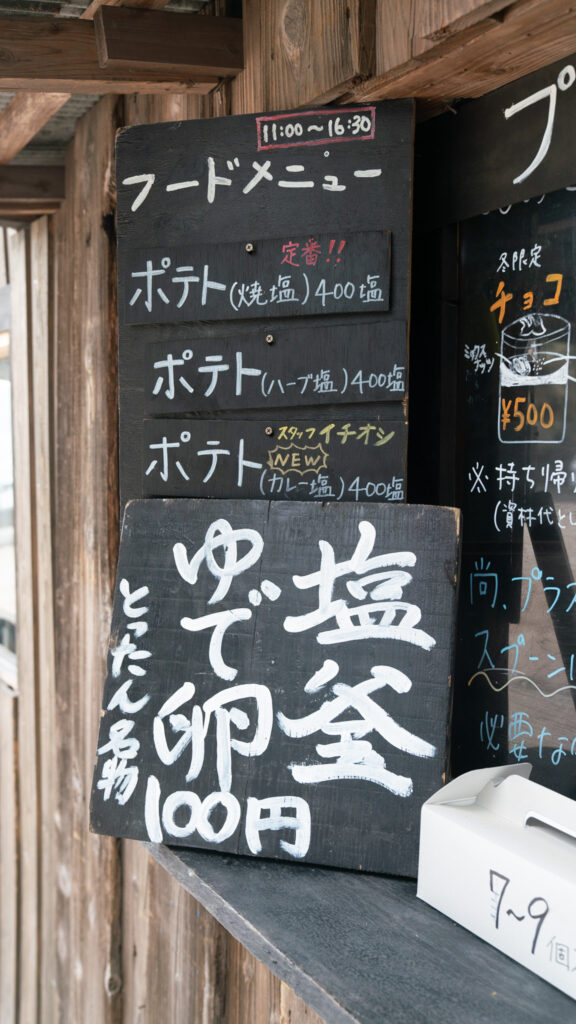 11:00～16:30
フードメニュー
定番!!
ポテト(焼塩)400塩
ポテト(ハーブ塩)400塩
スタッフイチオシ
NEW
ポテト(カレー塩)400塩
塩釜
ゆで卵
100円
とったん名物
プ
冬限定
チョコ
ミックス
ナッツ
¥500
※持ち帰り
(資材代とし
尚、プラス
スプーン
必要な
7~9個